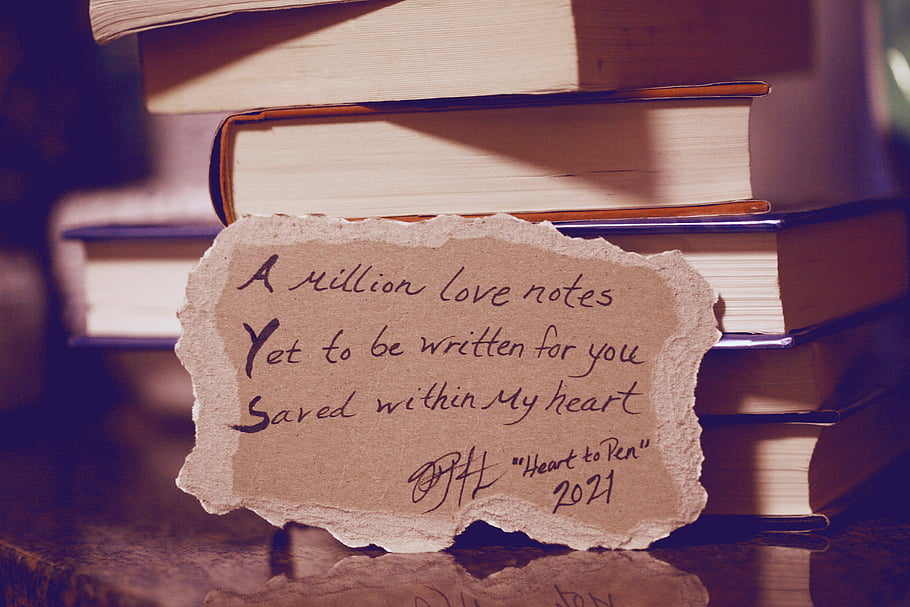 A Million love notes
Yet to be written for you
Saved within My heart
"'Heart to Pen"
2021